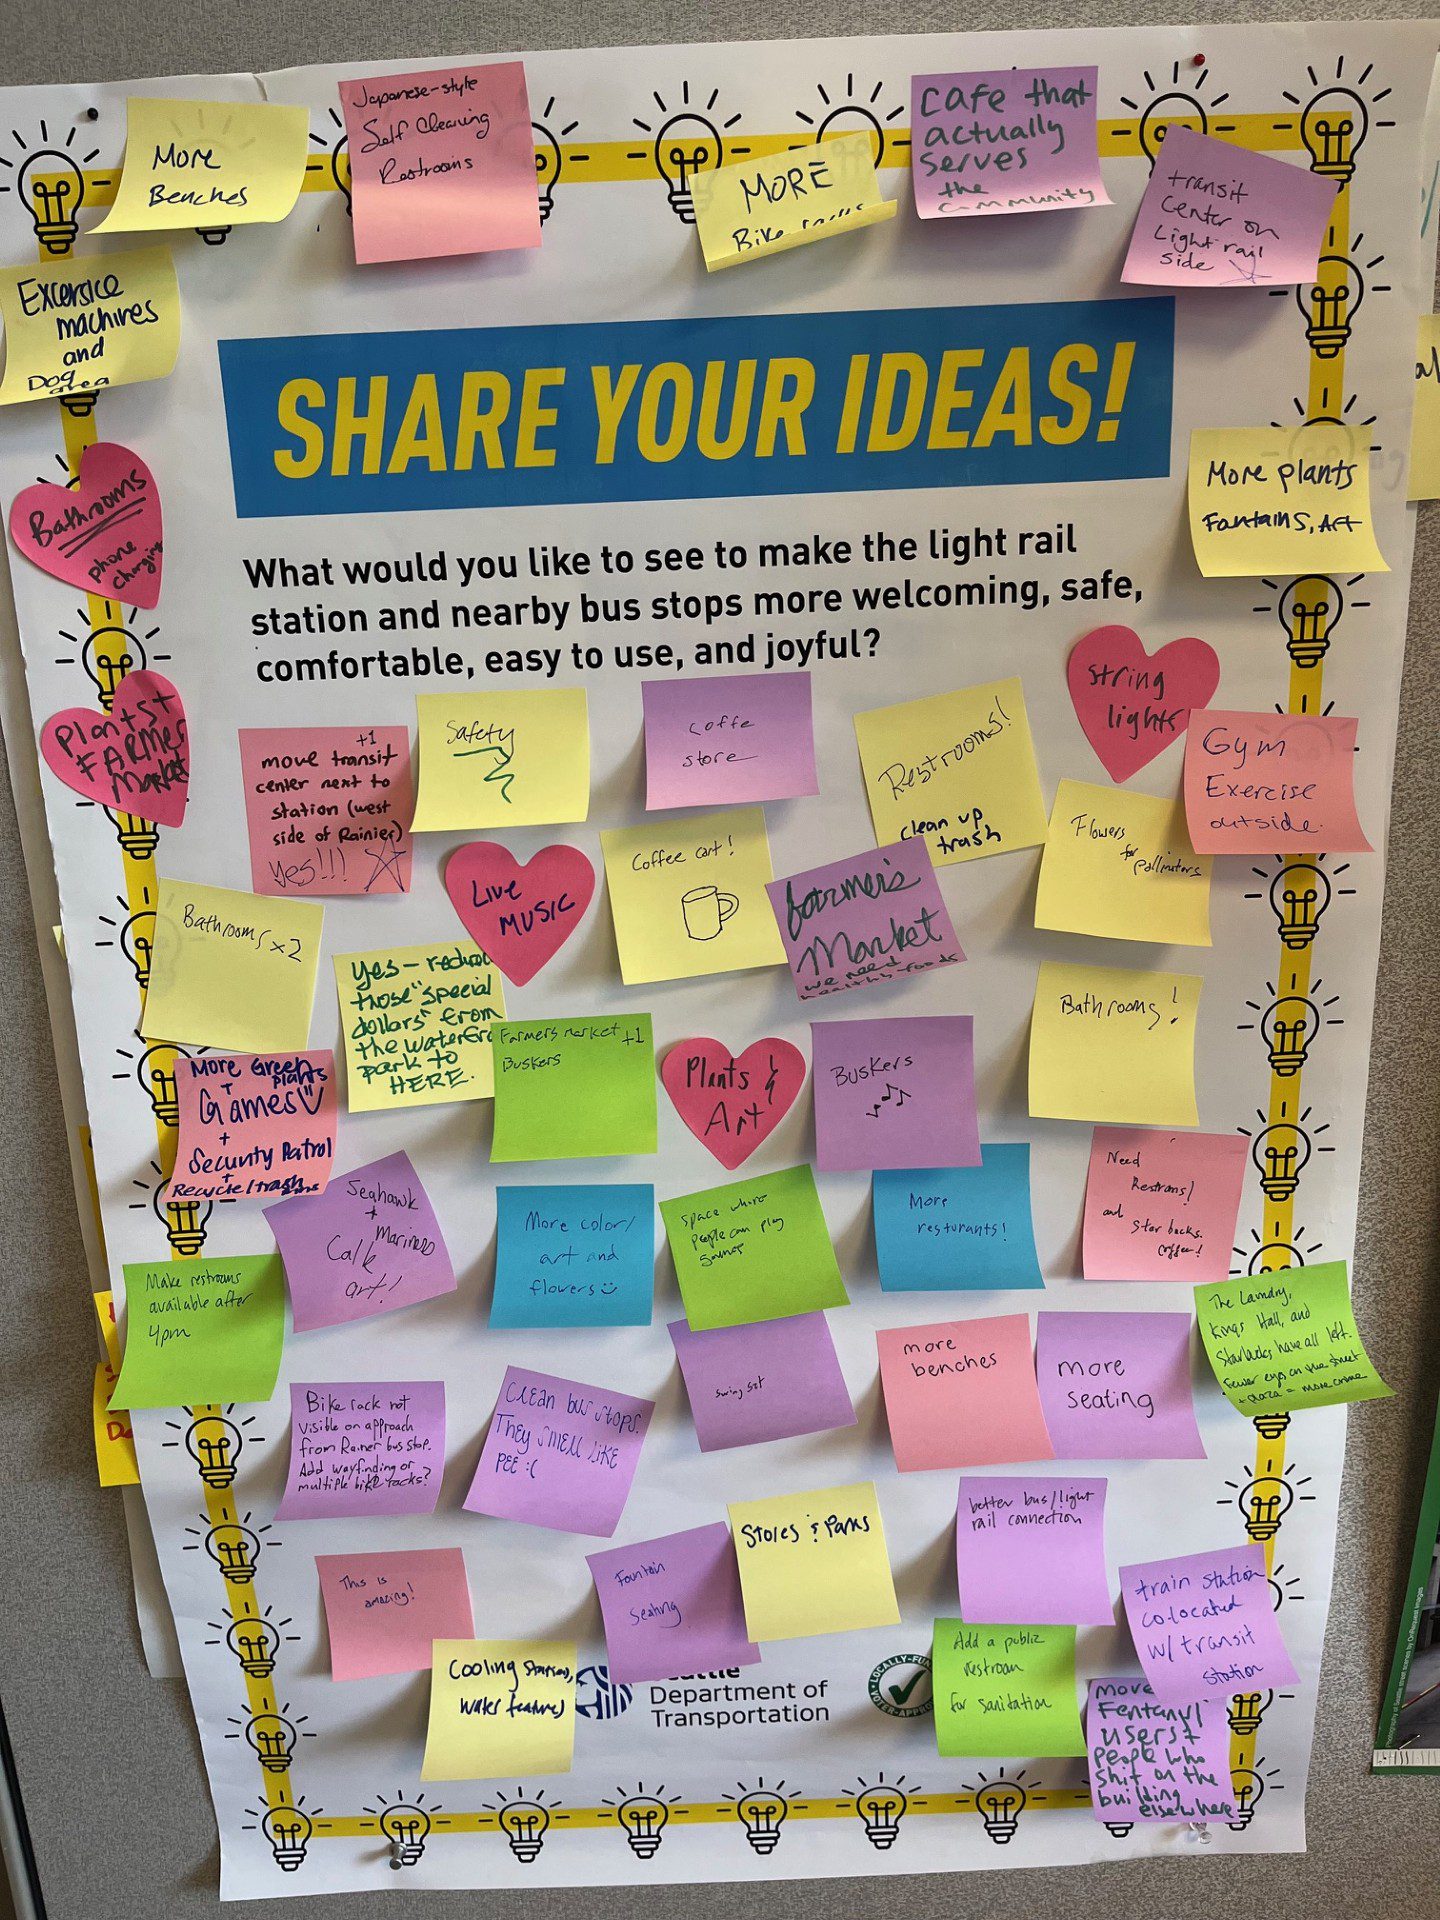 More
Benches
Japanese-style
Self Cleaning
Restrooms
MORE
Bike racks
cafe that
actually
serves
the
community
transit
Center on
Light rail
side
Excersice
machines
and
Dog area
SHARE YOUR IDEAS!
What would you like to see to make the light rail
station and nearby bus stops more welcoming, safe,
comfortable, easy to use, and joyful?
Bathrooms
phone
charging
More plants
Fantains, Art
Plants +
FARMER
Market
String
lights
+1
move transit
center next to
station (west
side of Rainier)
Yes!!!
Safety
Coffe
store
Restrooms!
clean up
trash
Gym
Exercise
outside.
Flowers
for
pollinators
Live
MUSIC
Coffee cart!
farmer's
Market
we need
healthy foods
Bathrooms x2
yes - reduce
those "special
dollars" from
the waterfront
park to
HERE.
Farmers market +1
Buskers
Plants &
Art
Buskers
Bathrooms!
More Green
plants
+
Games
+
Security Patrol
+
Recycle/trash
Seahawk
+
Mariners
Calk
art!
More color/
art and
flowers
Space where
people can play
games
More
resturants!
Need
Restrooms!
and
Starbucks.
coffee!
Make restrooms
available after
4pm
The Laundry,
Kings Hall, and
Starbucks have all left.
Fewer eyes on the street
+ plaza = more crime
Bike rack not
visible on approach
from Rainer bus stop.
Add wayfinding or
multiple bike racks?
Clean bus stops.
They smell like
pee :(
swing set
more
benches
more
seating
This is
amazing!
Fountain
Seating
Stores & Parks
better bus/light
rail connection
train station
co-located
w/ transit
station
Cooling stations,
water features
Seattle
Department of
Transportation
LOCALLY-FUN
VOTER-APPRO
Add a public
restroom
for sanitation
move
Fentanyl
users +
people who
shit on the
building
elsewhere
Photography of Seattle street scenes by OnRequest Images